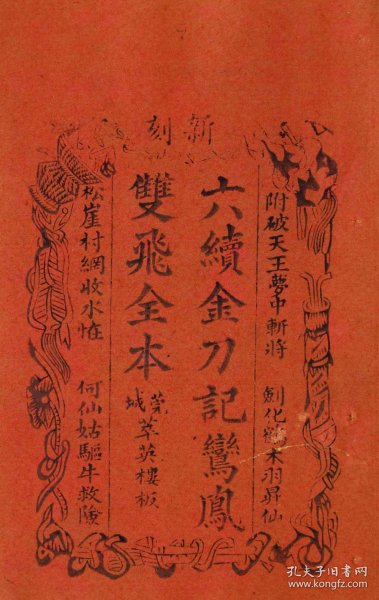 新刻
附破天王夢中斬將 劍化鶴木羽昇仙
六續金刀記鸞鳳
雙飛全本
莞城萃英樓板
松崖村網收水怪 何仙姑驅牛救險
孔夫子旧书网
www.kongfz.com